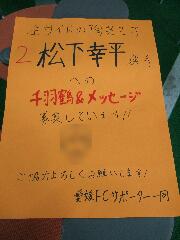 左サイドの
2 松下幸平 選手
への
千羽鶴&メッセージ
募集しています!!
ご協力よろしくお願いします!
愛媛FCサポーター一同